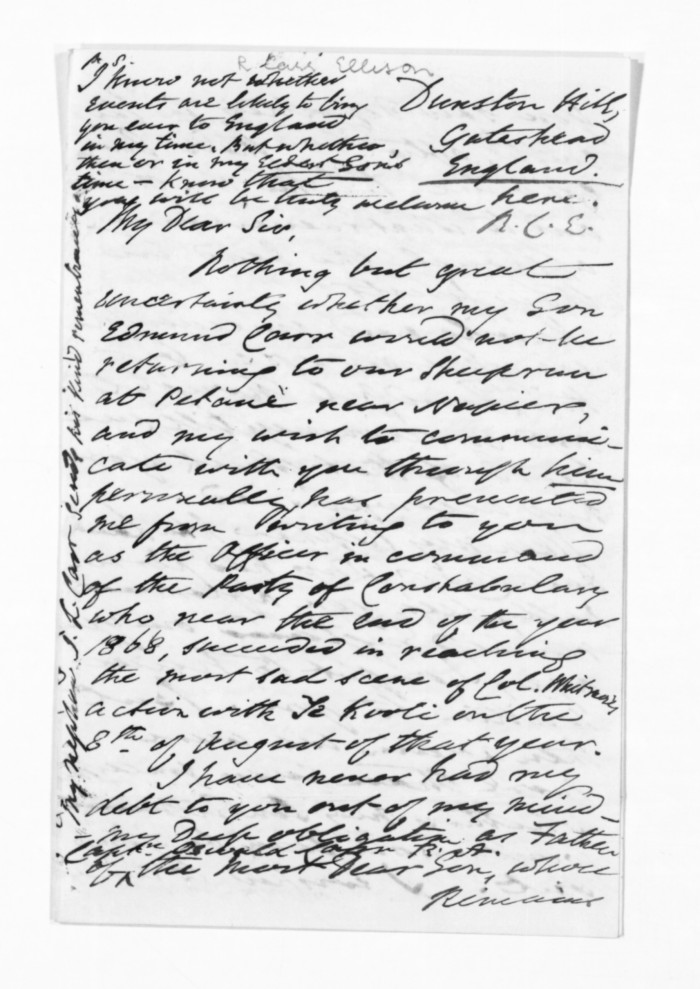 R. Carr Ellison
P.S.
I know not whether
events are likely to bring
you ever to England
in my time. But whether,
then or in my Eldest Son's
time – know that
you will be truly welcome here.
R. C. E.
Dunston Hill,
Gateshead
England.
My Dear Sir,
Nothing but great
uncertainty whether my Son
Edmund Carr would not be
returning to our Sheeprun
at Petane near Napier,
and my wish to communi-
cate with you through him
personally, has prevented
me from writing to you
as the Officer in command
of the Party of Constabulary
who near the end of the year
1868, succeeded in reaching
the most sad scene of Col. Whitmore's
action with Te Kooti on the
8th of August of that year.
I have never had my
debt to you out of my mind –
my Deep obligation as Father
Captn Oswald Carr R.A.
of ^ the most Dear Son, whose
Remains
My nephew J. L. Carr sends his kind remembrance